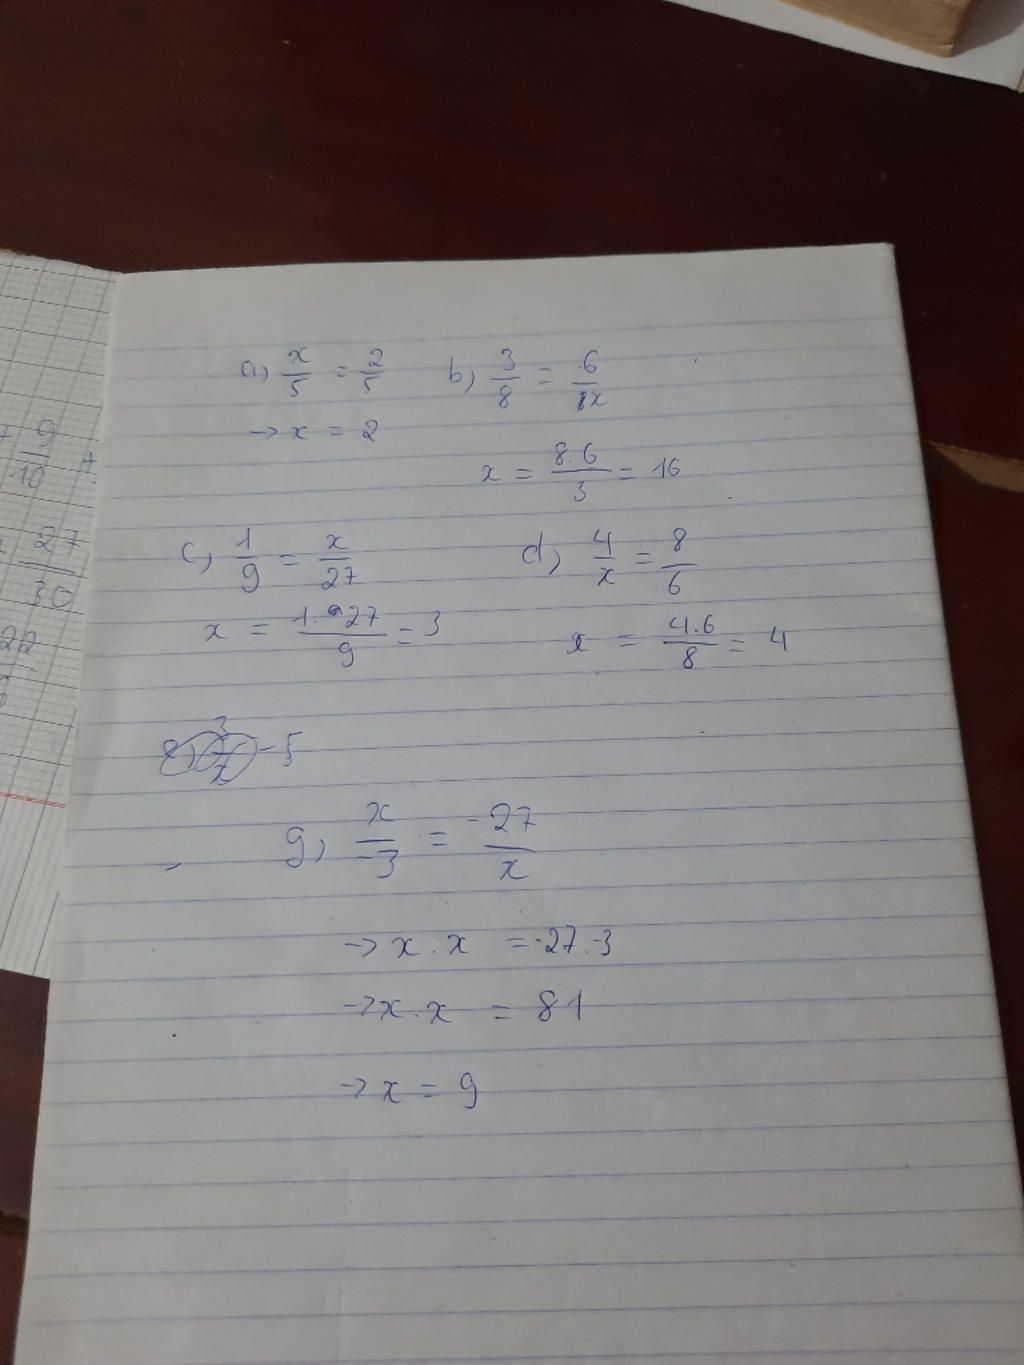 a) x/5 = 2/5 b) 3/8 = 6/x
→ x = 2
x = 8.6/3 = 16
c) 1/9 = x/27 d) 4/x = 8/6
x = 1.27/9 = 3 x = 4.6/8 = 4
g) x/-3 = -27/x
→ x . x = -27.-3
→ x . x = 81
→ x = 9
9/10 +
27/30
22